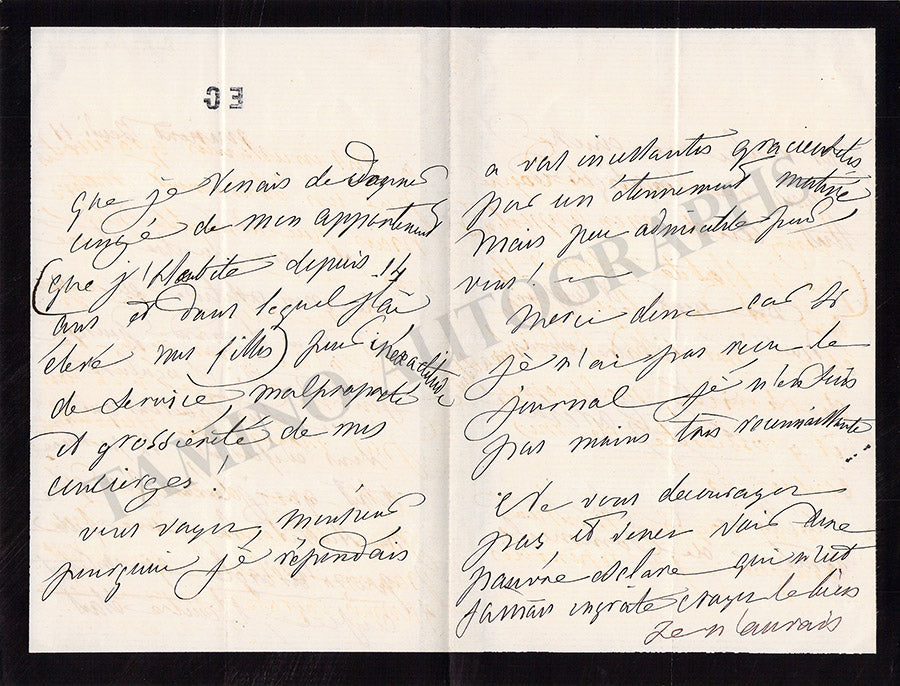 EG
que je venais de donner
congé de mon appartement
(que j'habite depuis 14
ans et dans lequel j'ai
élevé mes filles) pour inexactitude
de service malpropreté
et grossièreté de mes
concierges!
vous voyez, monsieur
pourquoi je répondais
à vos incessantes gracieusetés
par un étonnement motivé
mais peu admissible pour
vous!
Merci donc car si
je n'ai pas reçu le
journal je n'en suis
pas moins très reconnaissante
Ne vous découragez
pas et venez voir une
pauvre esclave qui n'est
jamais ingrate croyez le bien
TAMINO AUTOGRAPHS